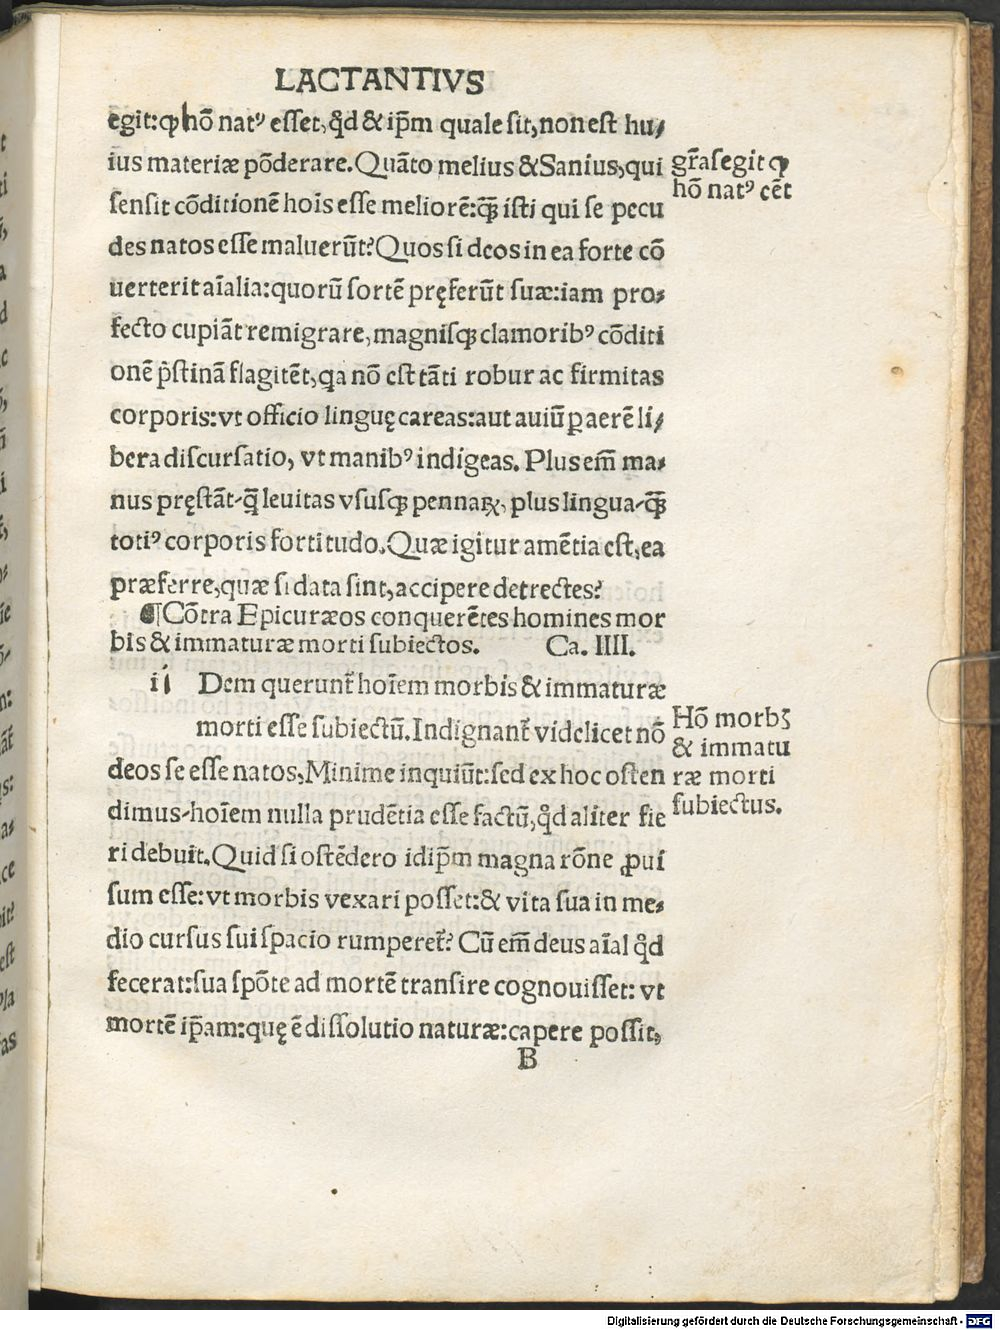 LACTANTIVS
egit:ꝙ hō natꝰ eſſet, qd̄ & ip̄m quale ſit, non eſt hu⸗
ius materiæ pōderare. Quāto melius & Sanius, qui
ſenſit cōditionē hoīs eſſe meliorē: q̄ꝫ iſti qui ſe pecu
des natos eſſe maluerūt? Quos ſi deos in ea forte cō
uerterit aīalia: quorū ſortē pręferūt ſuæ: iam pro⸗
fecto cupiāt remigrare, magniſqꝫ clamoribꝰ cōditi
onē p̄ſtinā flagitēt, qa nō eſt tāti robur ac firmitas
corporis: vt officio linguę careas: aut auiū ꝑ aerē li⸗
bera diſcurſatio, vt manibꝰ indigeas. Plus em̄ ma⸗
nus pręſtāt⸗ q̄ leuitas vſuſqꝫ pennaꝝ, plus lingua⸗ q̄ꝫ
totiꝰ corporis fortitudo. Quæ igitur amētia eſt, ea
præferre, quæ ſi data ſint, accipere detrectes?
¶ Cōtra Epicuræos conquerētes homines mor
bis & immaturæ morti ſubiectos. Ca. IIII.
ii Dem querunt̄ hoīem morbis & immaturæ
morti eſſe ſubiectū. Indignant̄ videlicet nō
deos ſe eſſe natos, Minime inquiūt: ſed ex hoc oſten
dimus⸗ hoīem nulla prudētia eſſe factū, qd̄ aliter fie
ri debuit. Quid ſi oſtēdero id ip̄m magna rōne ꝓui
ſum eſſe: vt morbis vexari poſſet: & vita ſua in me⸗
dio curſus ſui ſpacio rumperet̄? Cū em̄ deus aīal qd̄
fecerat: ſua ſpōte ad mortē tranſire cognouiſſet: vt
mortē ip̄am: quę ē diſſolutio naturæ: capere poſſit,
B
gr̄as egit ꝙ
hō natꝰ cēt
Hō morbꝫ
& immatu
ræ morti
ſubiectus.
Digitalisierung gefördert durch die Deutsche Forschungsgemeinschaft - DFG